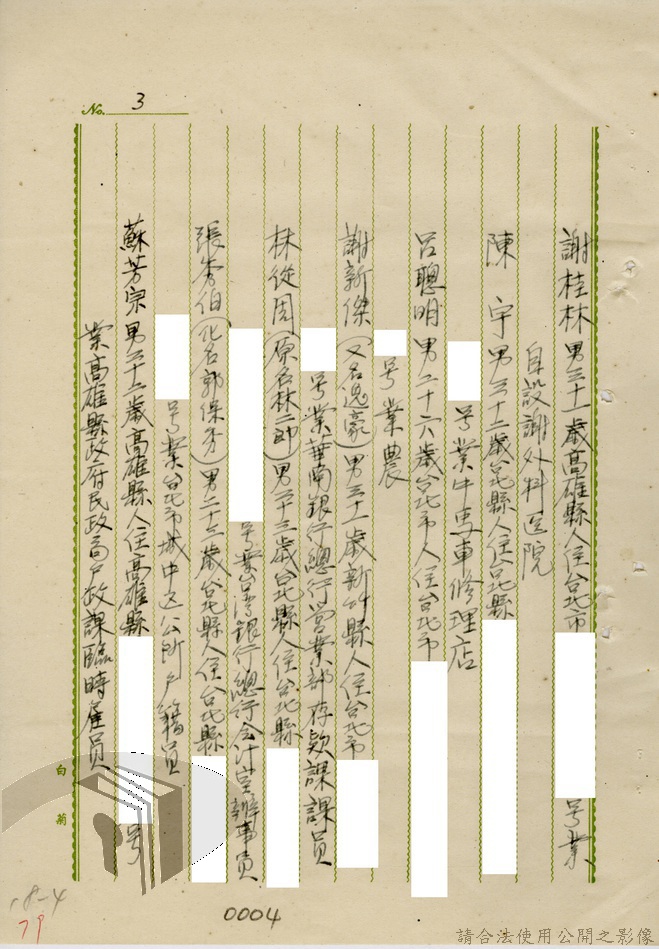 No. 3
謝桂林男三十一歲高雄縣人住台北市 号業
自設謝外科医院
陳 宇男三十二歲台北縣人住台北縣
号業牛馬車修理店
呂聰明男二十六歲台北市人住台北市
号業農
謝新傑(又名逸豪)男三十一歲新竹縣人住台北市
号業華南銀行總行營業部存款課課員
林從周(原名林二郎)男三十三歲台北縣人住台北縣
号業台湾銀行總行会计室辦事員
張秀伯(化名郭保李)男二十三歲台北縣人住台北縣
号業台北市城中区公所户籍員
蘇芳宗男三十二歲高雄縣人住高雄縣 号
業高雄縣政府民政局户政課臨時雇員
白菊
18-4
79
0004
請合法使用公開之影像